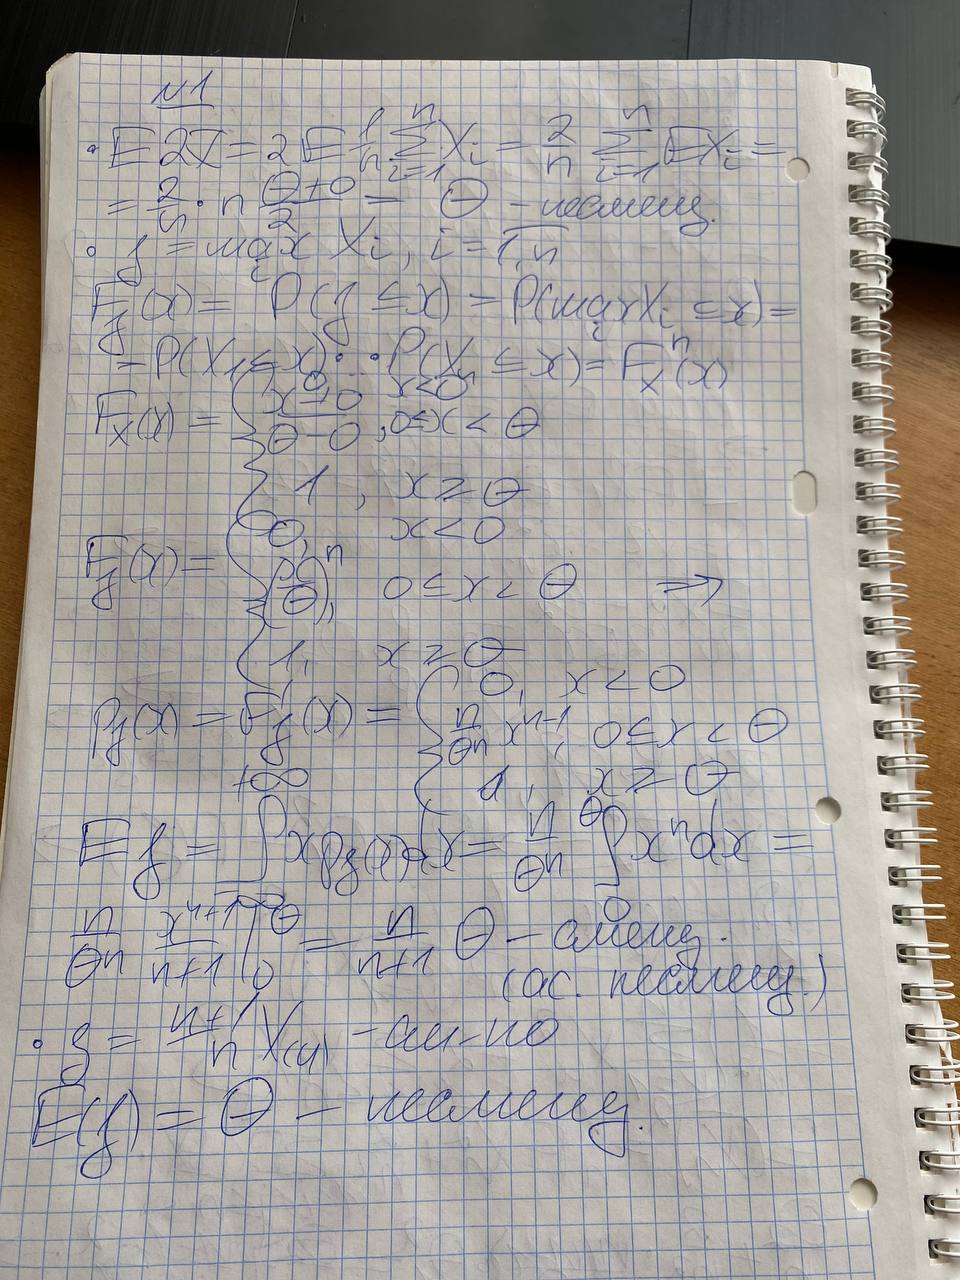 №1
• E2X̄ = 2E 1/n ∑_{i=1}^{n} X_i = 2/n ∑_{i=1}^{n} EX_i =
= 2/n · n (θ+0)/2 = θ – несмещ.
• ξ = max_i X_i, i = 1,n
F_ξ(x) = P(ξ ≤ x) = P(max_i X_i ≤ x) =
= P(X_1 ≤ x) ··· P(X_n ≤ x) = F_X^n(x)
F_X(x) = { 0, x<0
(x-0)/(θ-0), 0≤x<θ
1, x ≥ θ
F_ξ(x) = { 0, x<0
(x/θ)^n, 0≤x<θ ⇒
1, x ≥ θ
p_ξ(x) = F'_ξ(x) = { 0, x<0
n/θ^n x^{n-1}, 0≤x<θ
1, x ≥ θ
Eξ = ∫_{-∞}^{+∞} x p_ξ(x)dx = n/θ^n ∫_0^θ x^n dx =
n/θ^n x^{n+1}/(n+1) |_0^θ = n/(n+1) θ – смещ.
(ас. несмещ.)
• ξ = (n+1)/n X_(n) – ан-но
E(ξ) = θ – несмещ.